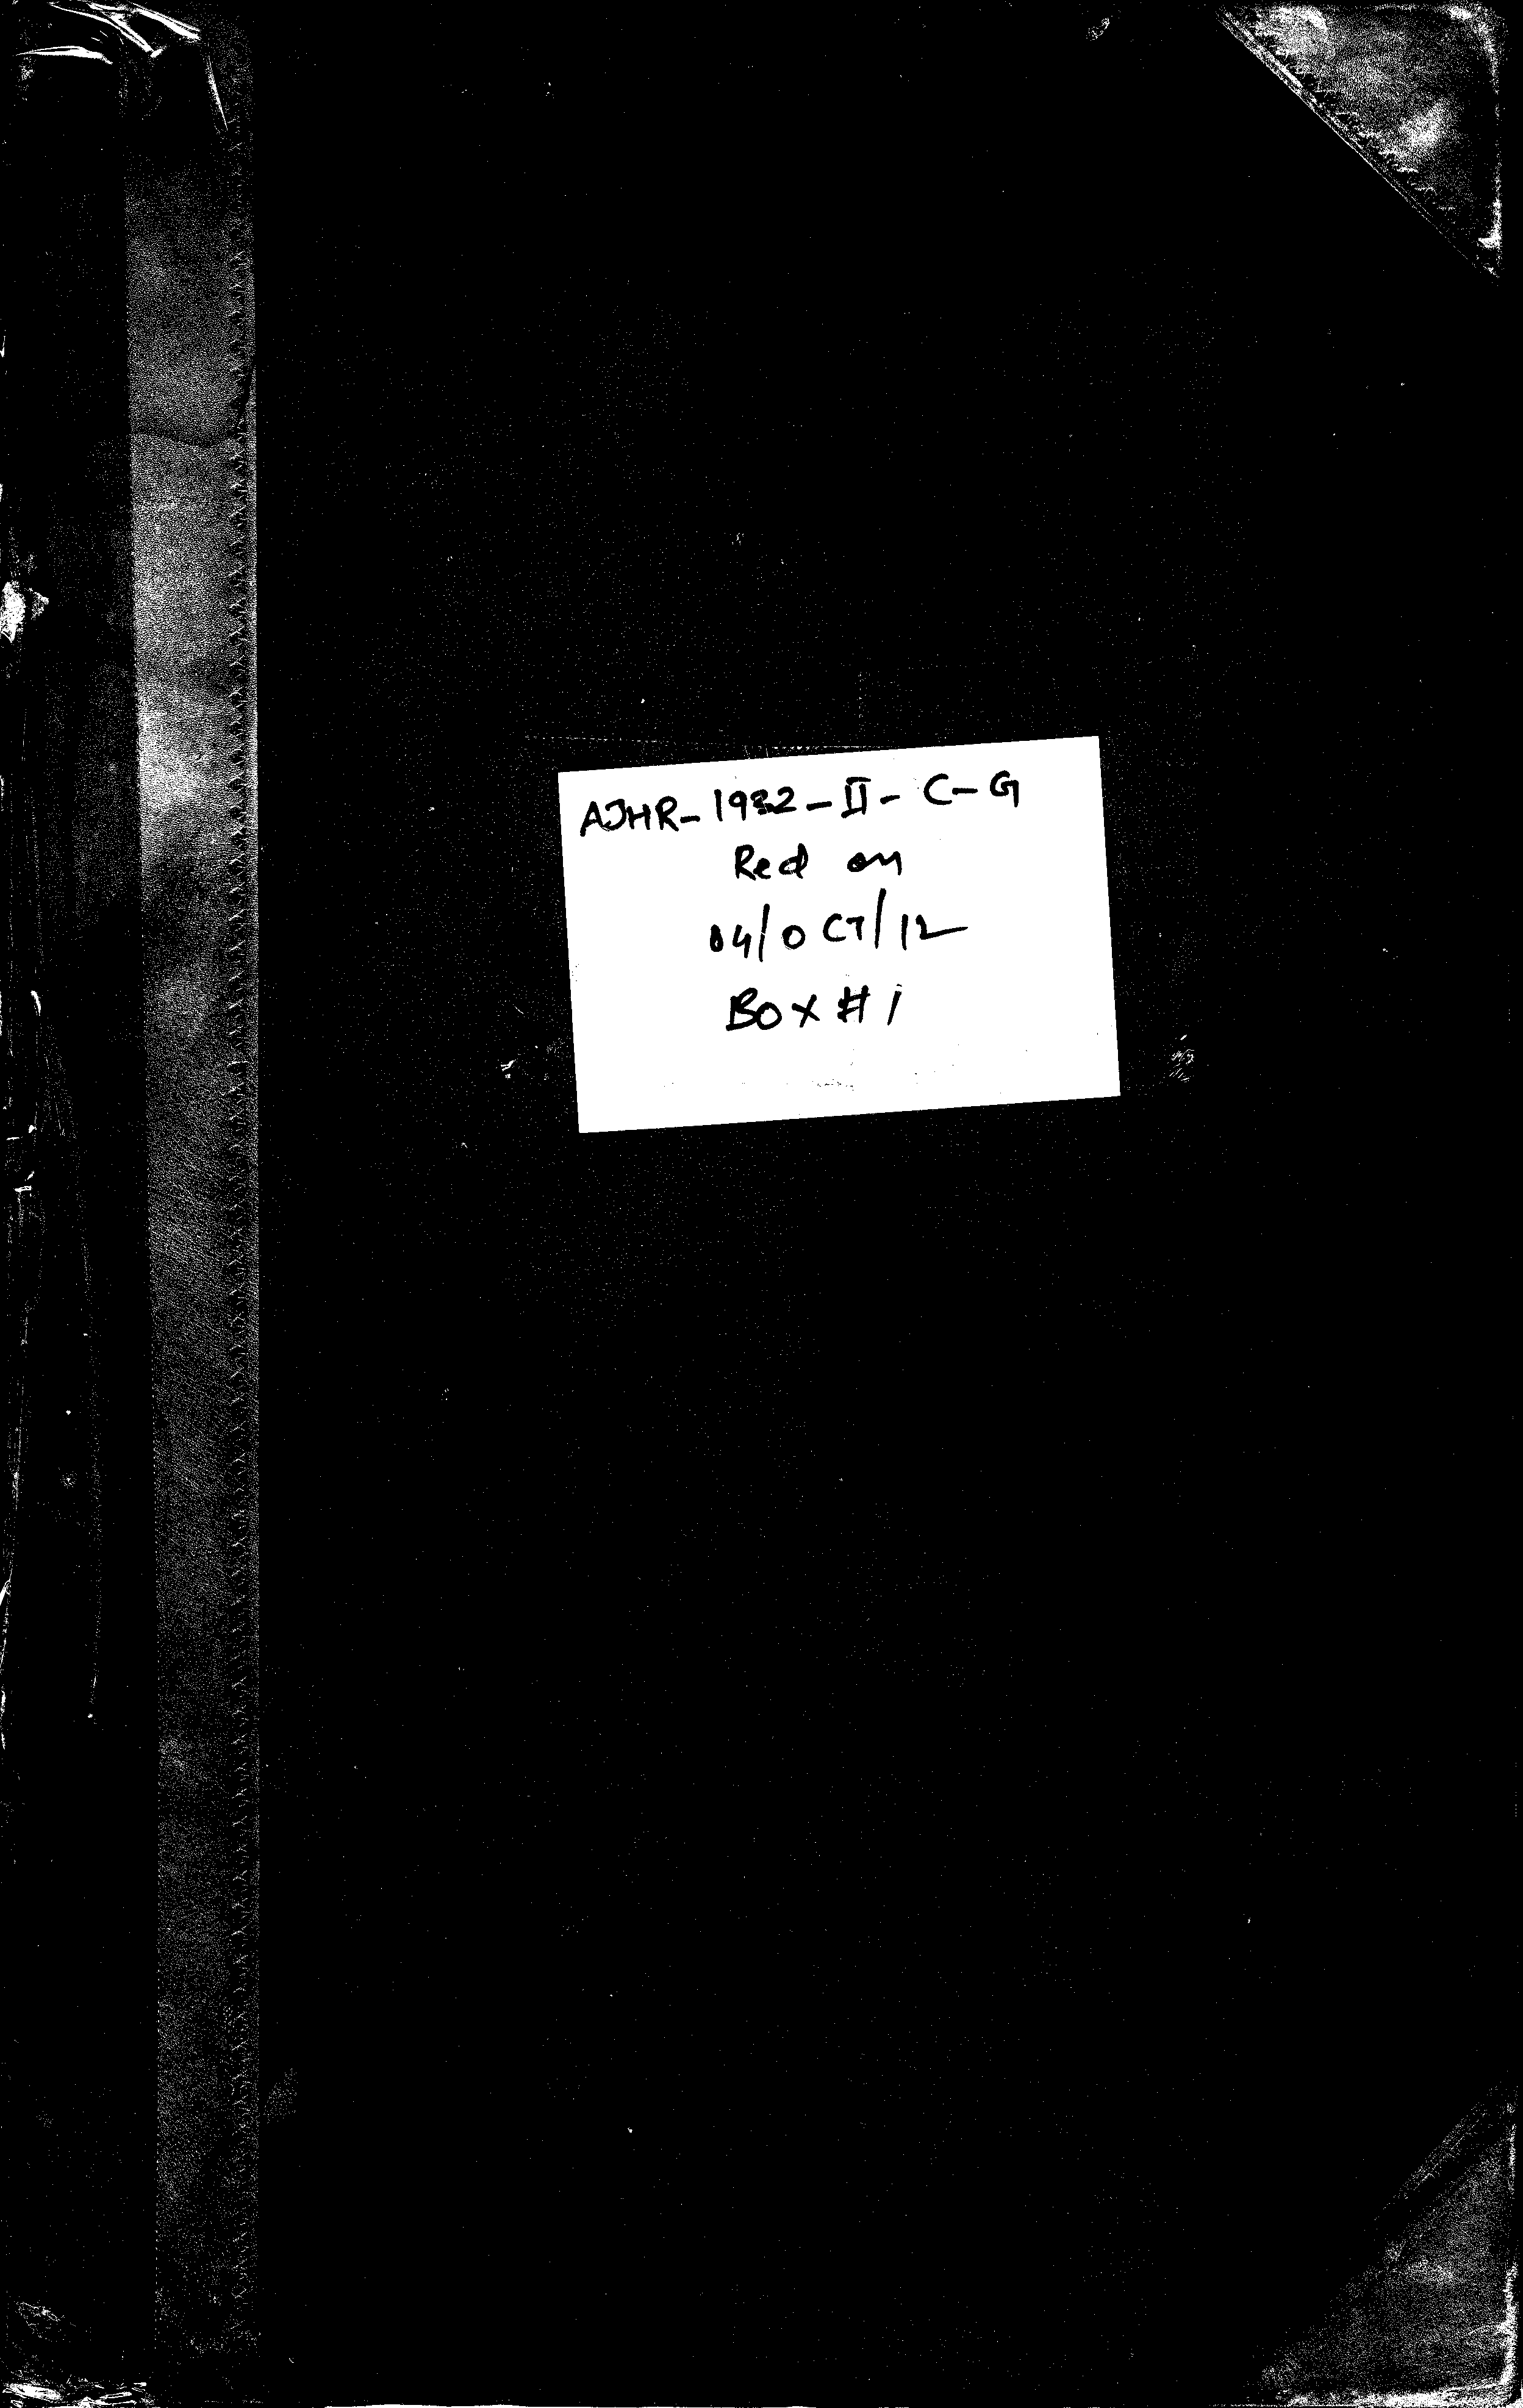 AJHR-1932-II-C-G
Red on
04/OCT/12
Box #1